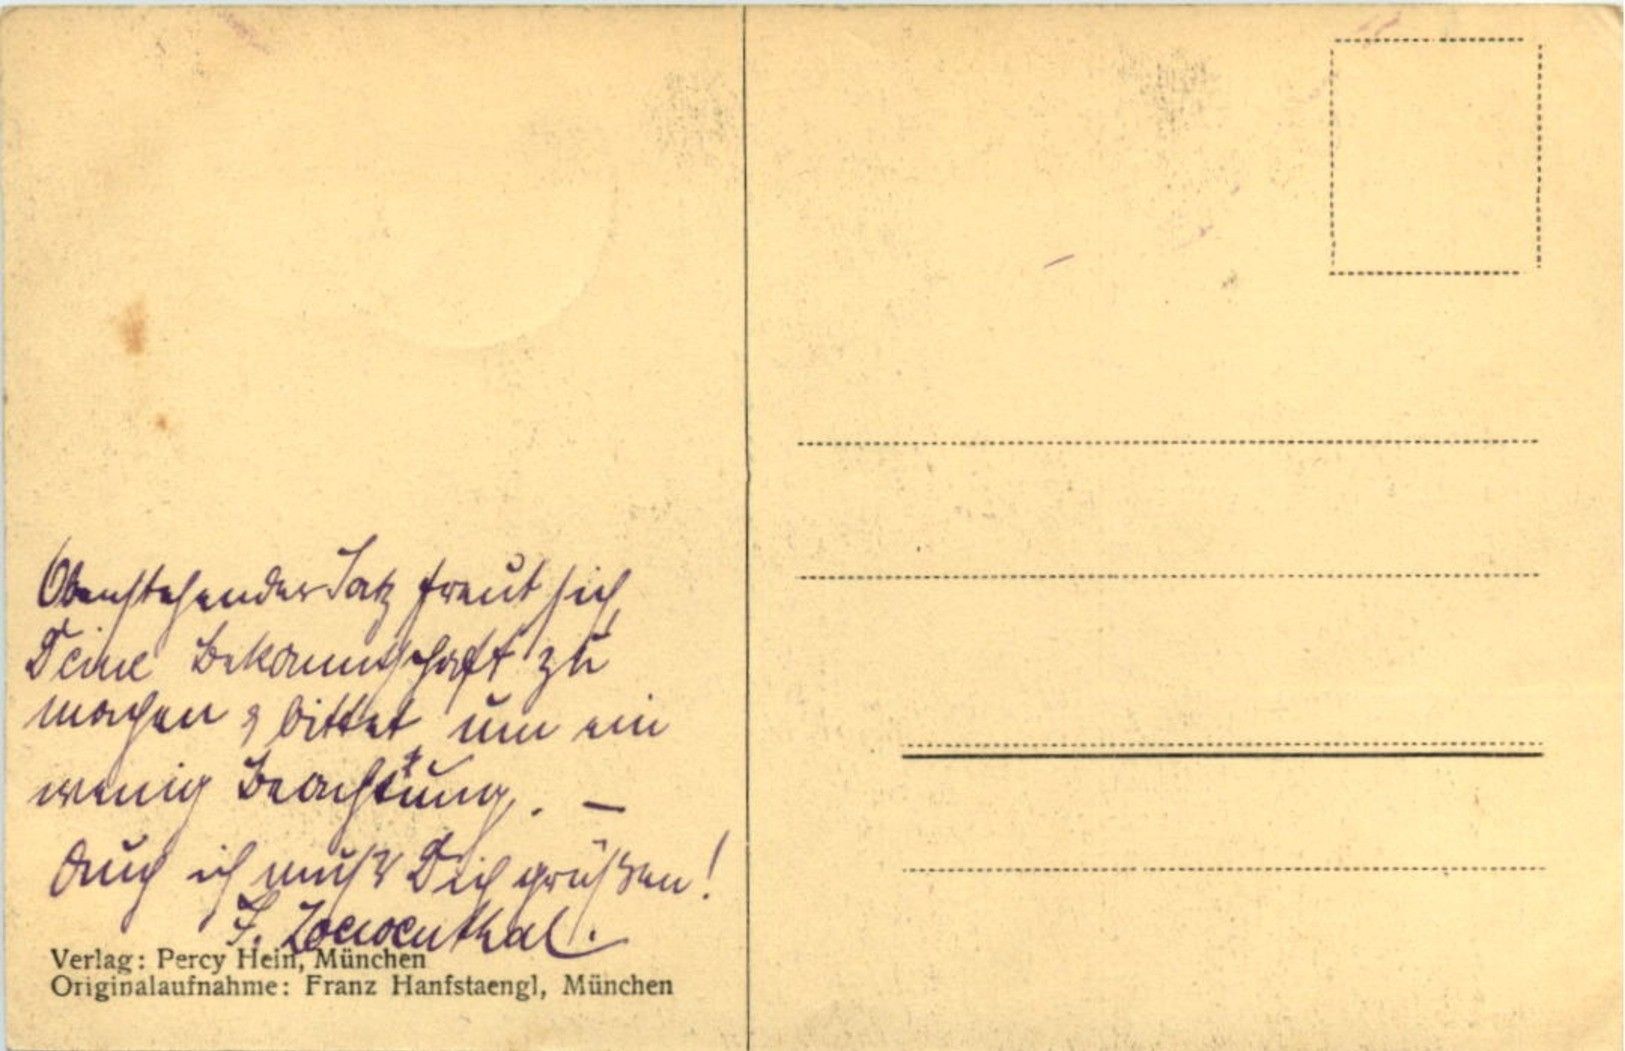 Obenstehender Satz freut sich
Deine Bekanntschaft zu
machen & bittet um ein
wenig Beachtung. —
Auch ich muß Dich grüßen!
F. Loewenthal.
Verlag: Percy Hein, München
Originalaufnahme: Franz Hanfstaengl, München